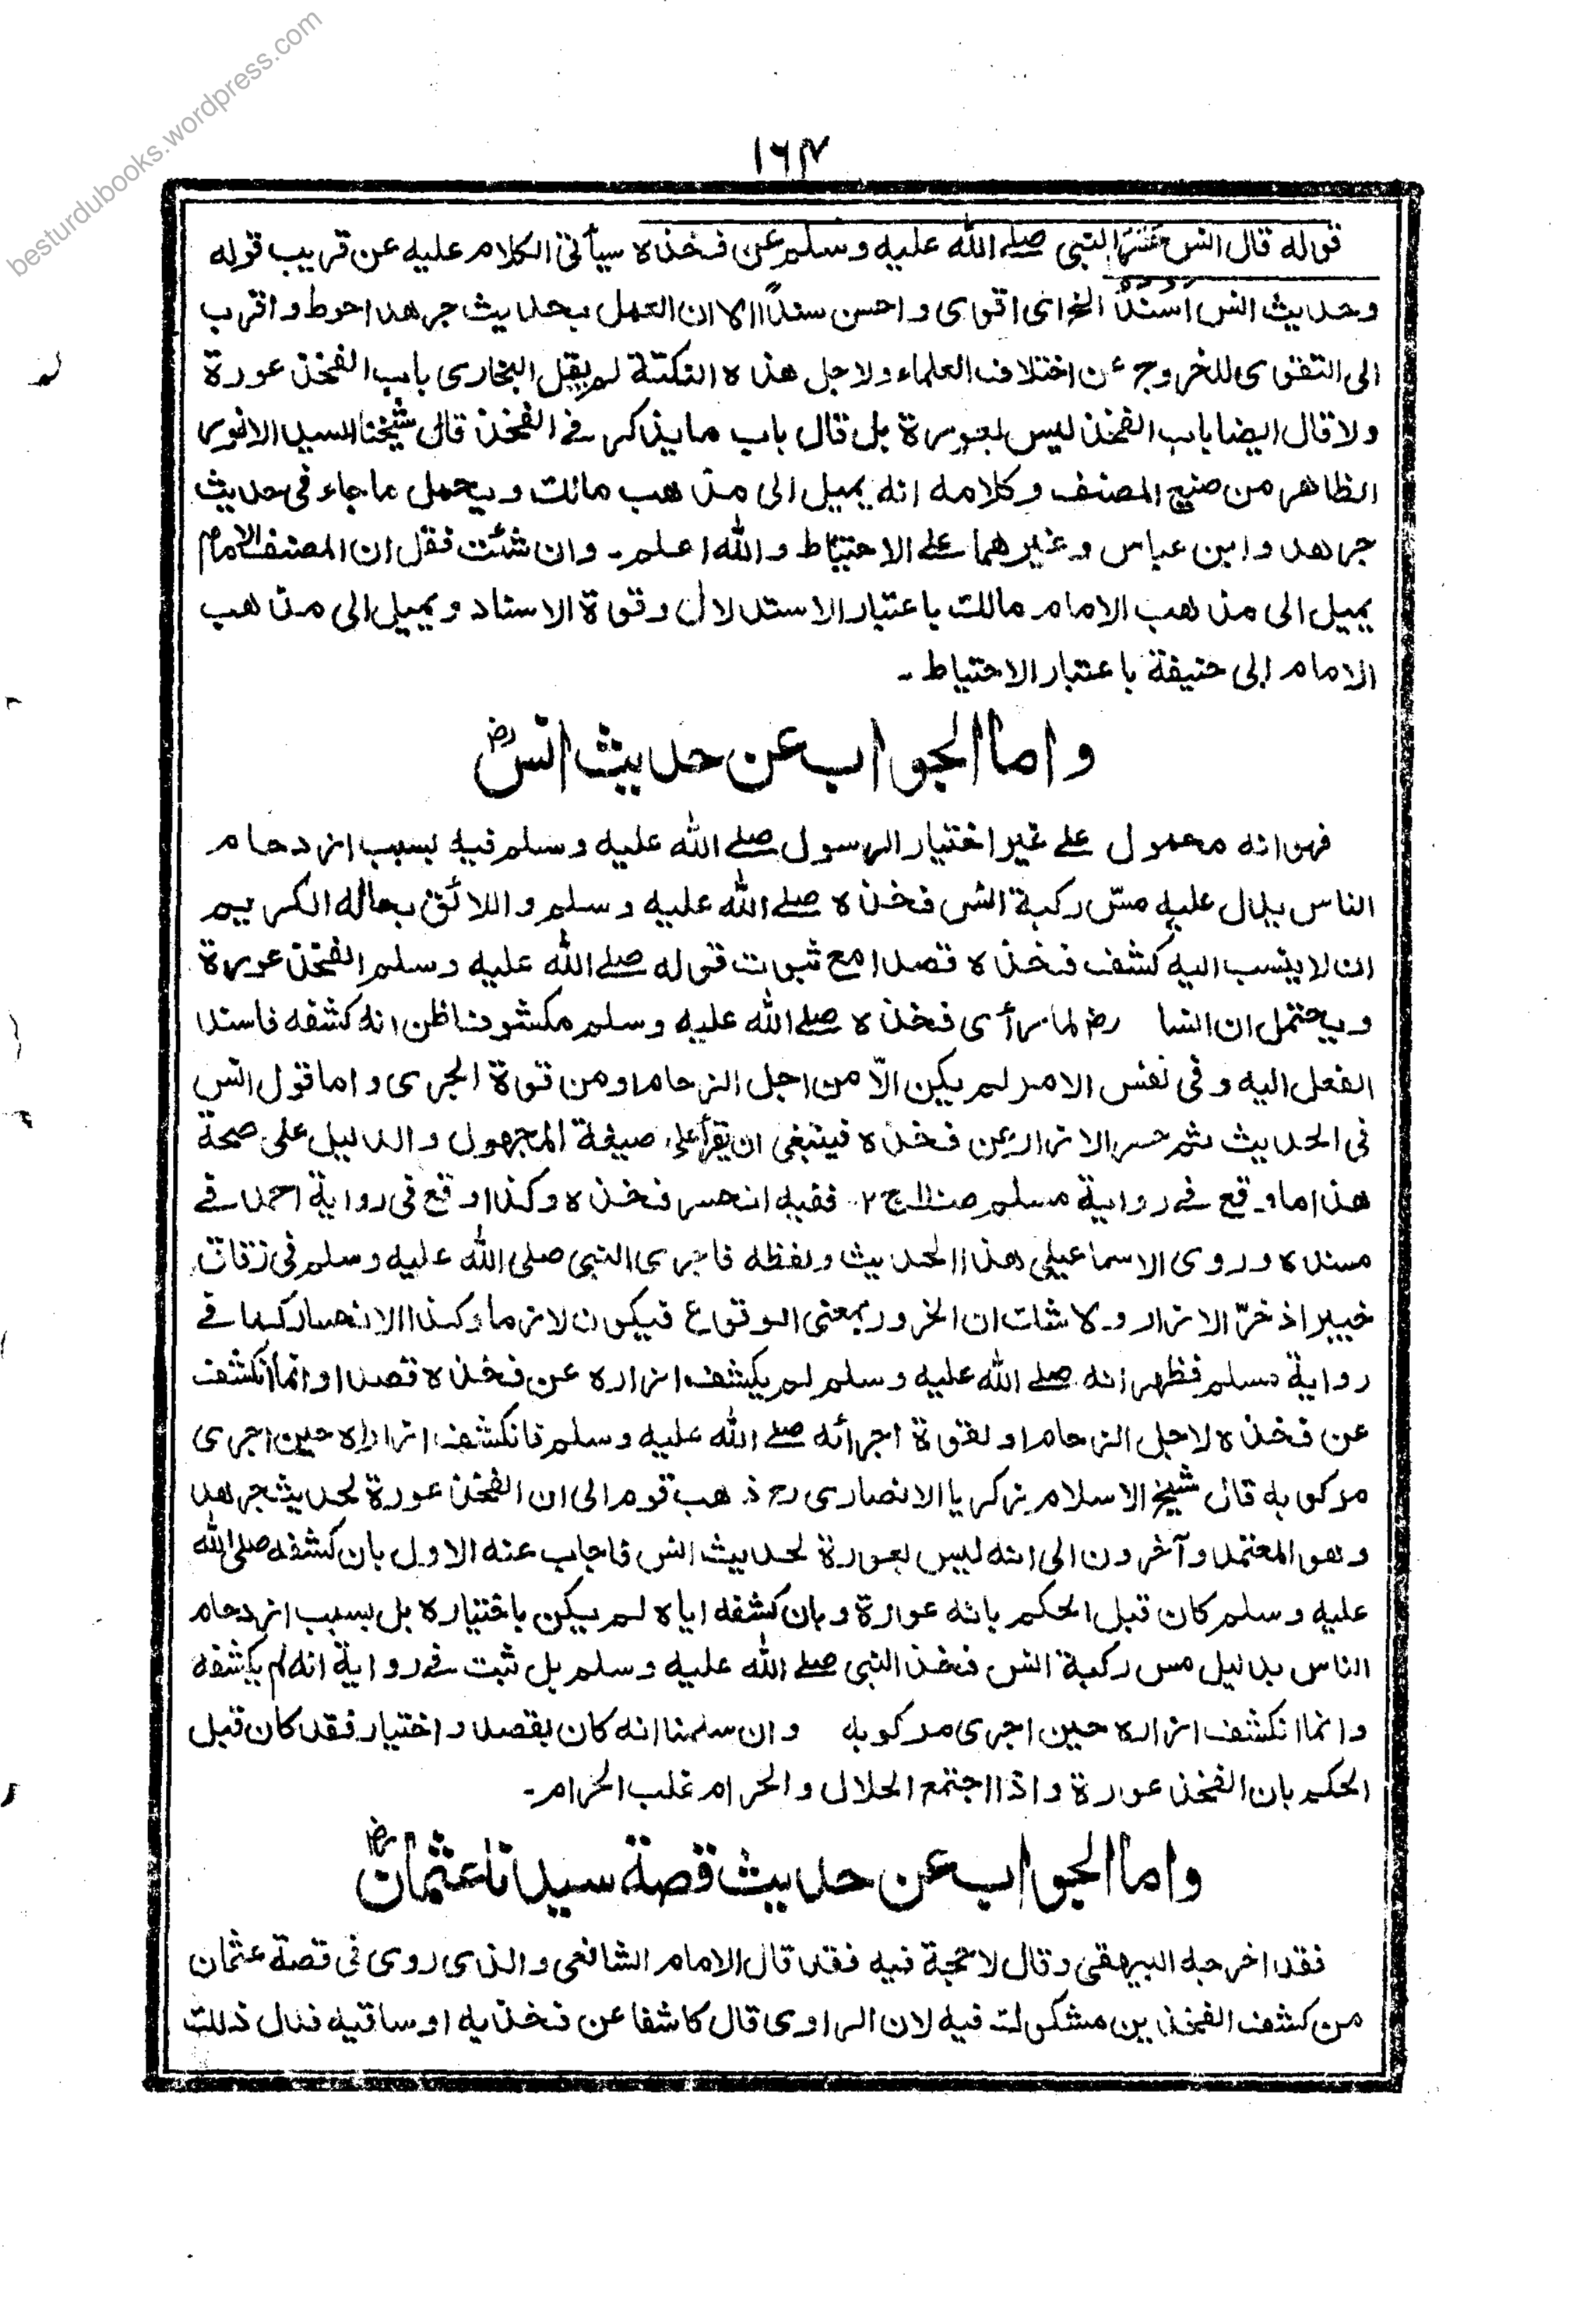 besturdubooks.wordpress.com
١٦٧
قوله قال انس حسر النبي صلے الله عليه وسلم عن فخذه سيأتى الكلام عليه عن قريب قوله
وحديث انس اسند الخ اى اقوى و احسن سندًا الا ان العمل بحديث جرهد احوط و اقرب
الى التقوى للخروج عن اختلاف العلماء ولاجل هذه النكتة لم يقل البخارى باب الفخذ عورة
ولا قال ايضا باب الفخذ ليس بعورة بل قال باب ما يذكر فے الفخذ قال شيخنا السيد الانور
الظاهر من صنيع المصنف و كلامه انه يميل الى مذهب مالك و يحمل ما جاء فى حديث
جرهد و ابن عباس و غيرهما علے الاحتياط و الله اعلم۔ وان شئت فقل ان المصنف الامام
يميل الى مذهب الامام مالك باعتبار الاستدلال و قوة الاسناد و يميل الى مذهب
الامام ابى حنيفة باعتبار الاحتياط۔
و اما الجواب عن حديث انسؓ
فهو انه محمول علے غير اختيار الرسول صلے الله عليه وسلم فيه بسبب ازدحام
الناس يدل عليه مسّ ركبة انس فخذه صلے الله عليه وسلم و اللائق بحاله الكريم
ان لا ينسب اليه كشف فخذه قصدا مع ثبوت قوله صلے الله عليه وسلم الفخذ عورة
و يحتمل ان انسا رضـ لما رأى فخذه صلے الله عليه وسلم مكشوفا ظن انه كشفه فاسند
الفعل اليه و فى نفس الامر لم يكن الّا من اجل الزحام او من قوة الجرى و اما قول انس
فى الحديث ثم حسر الازار عن فخذه فينبغى ان يقرأ على صيغة المجهول و الدليل على صحة
هذا ما وقع فے رواية مسلم صـ ج ٢. ففيه انحسر فخذه و كذا وقع فى رواية احمد فے
مسنده و روى الاسماعيلى هذا الحديث و لفظه فاجرى النبى صلى الله عليه وسلم فى زقاق
خيبر اذ خرّ الازار ولا شك ان الخرور بمعنى الوقوع فيكون لازما و كذا الانحسار كما فے
رواية مسلم فظهر انه صلے الله عليه وسلم لم يكشف ازاره عن فخذه قصدا و انما انكشف
عن فخذه لاجل الزحام او لقوة اجرائه صلے الله عليه وسلم فانكشف ازاره حين اجرى
مركوبه قال شيخ الاسلام زكريا الانصارى رح ذهب قوم الى ان الفخذ عورة لحديث جرهد
و هو المعتمد و آخرون الى انه ليس بعورة لحديث انس فاجاب عنه الاول بان كشفه صلى الله
عليه وسلم كان قبل الحكم بانه عورة و بان كشفه اياه لم يكن باختياره بل بسبب ازدحام
الناس بدليل مس ركبة انس فخذ النبى صلے الله عليه وسلم بل ثبت فے رواية انه لم يكشفه
و انما انكشف ازاره حين اجرى مركوبه وان سلمنا انه كان بقصد و اختيار فقد كان قبل
الحكم بان الفخذ عورة و اذا اجتمع الحلال و الحرام غلب الحرام۔
و اما الجواب عن حديث قصة سيدنا عثمانؓ
فقد اخرجه البيهقى و قال لا حجة فيه فقد قال الامام الشافعى و الذى روى فى قصة عثمان
من كشف الفخذين مشكوك فيه لان الراوى قال كاشفا عن فخذيه او ساقيه فدل ذلك